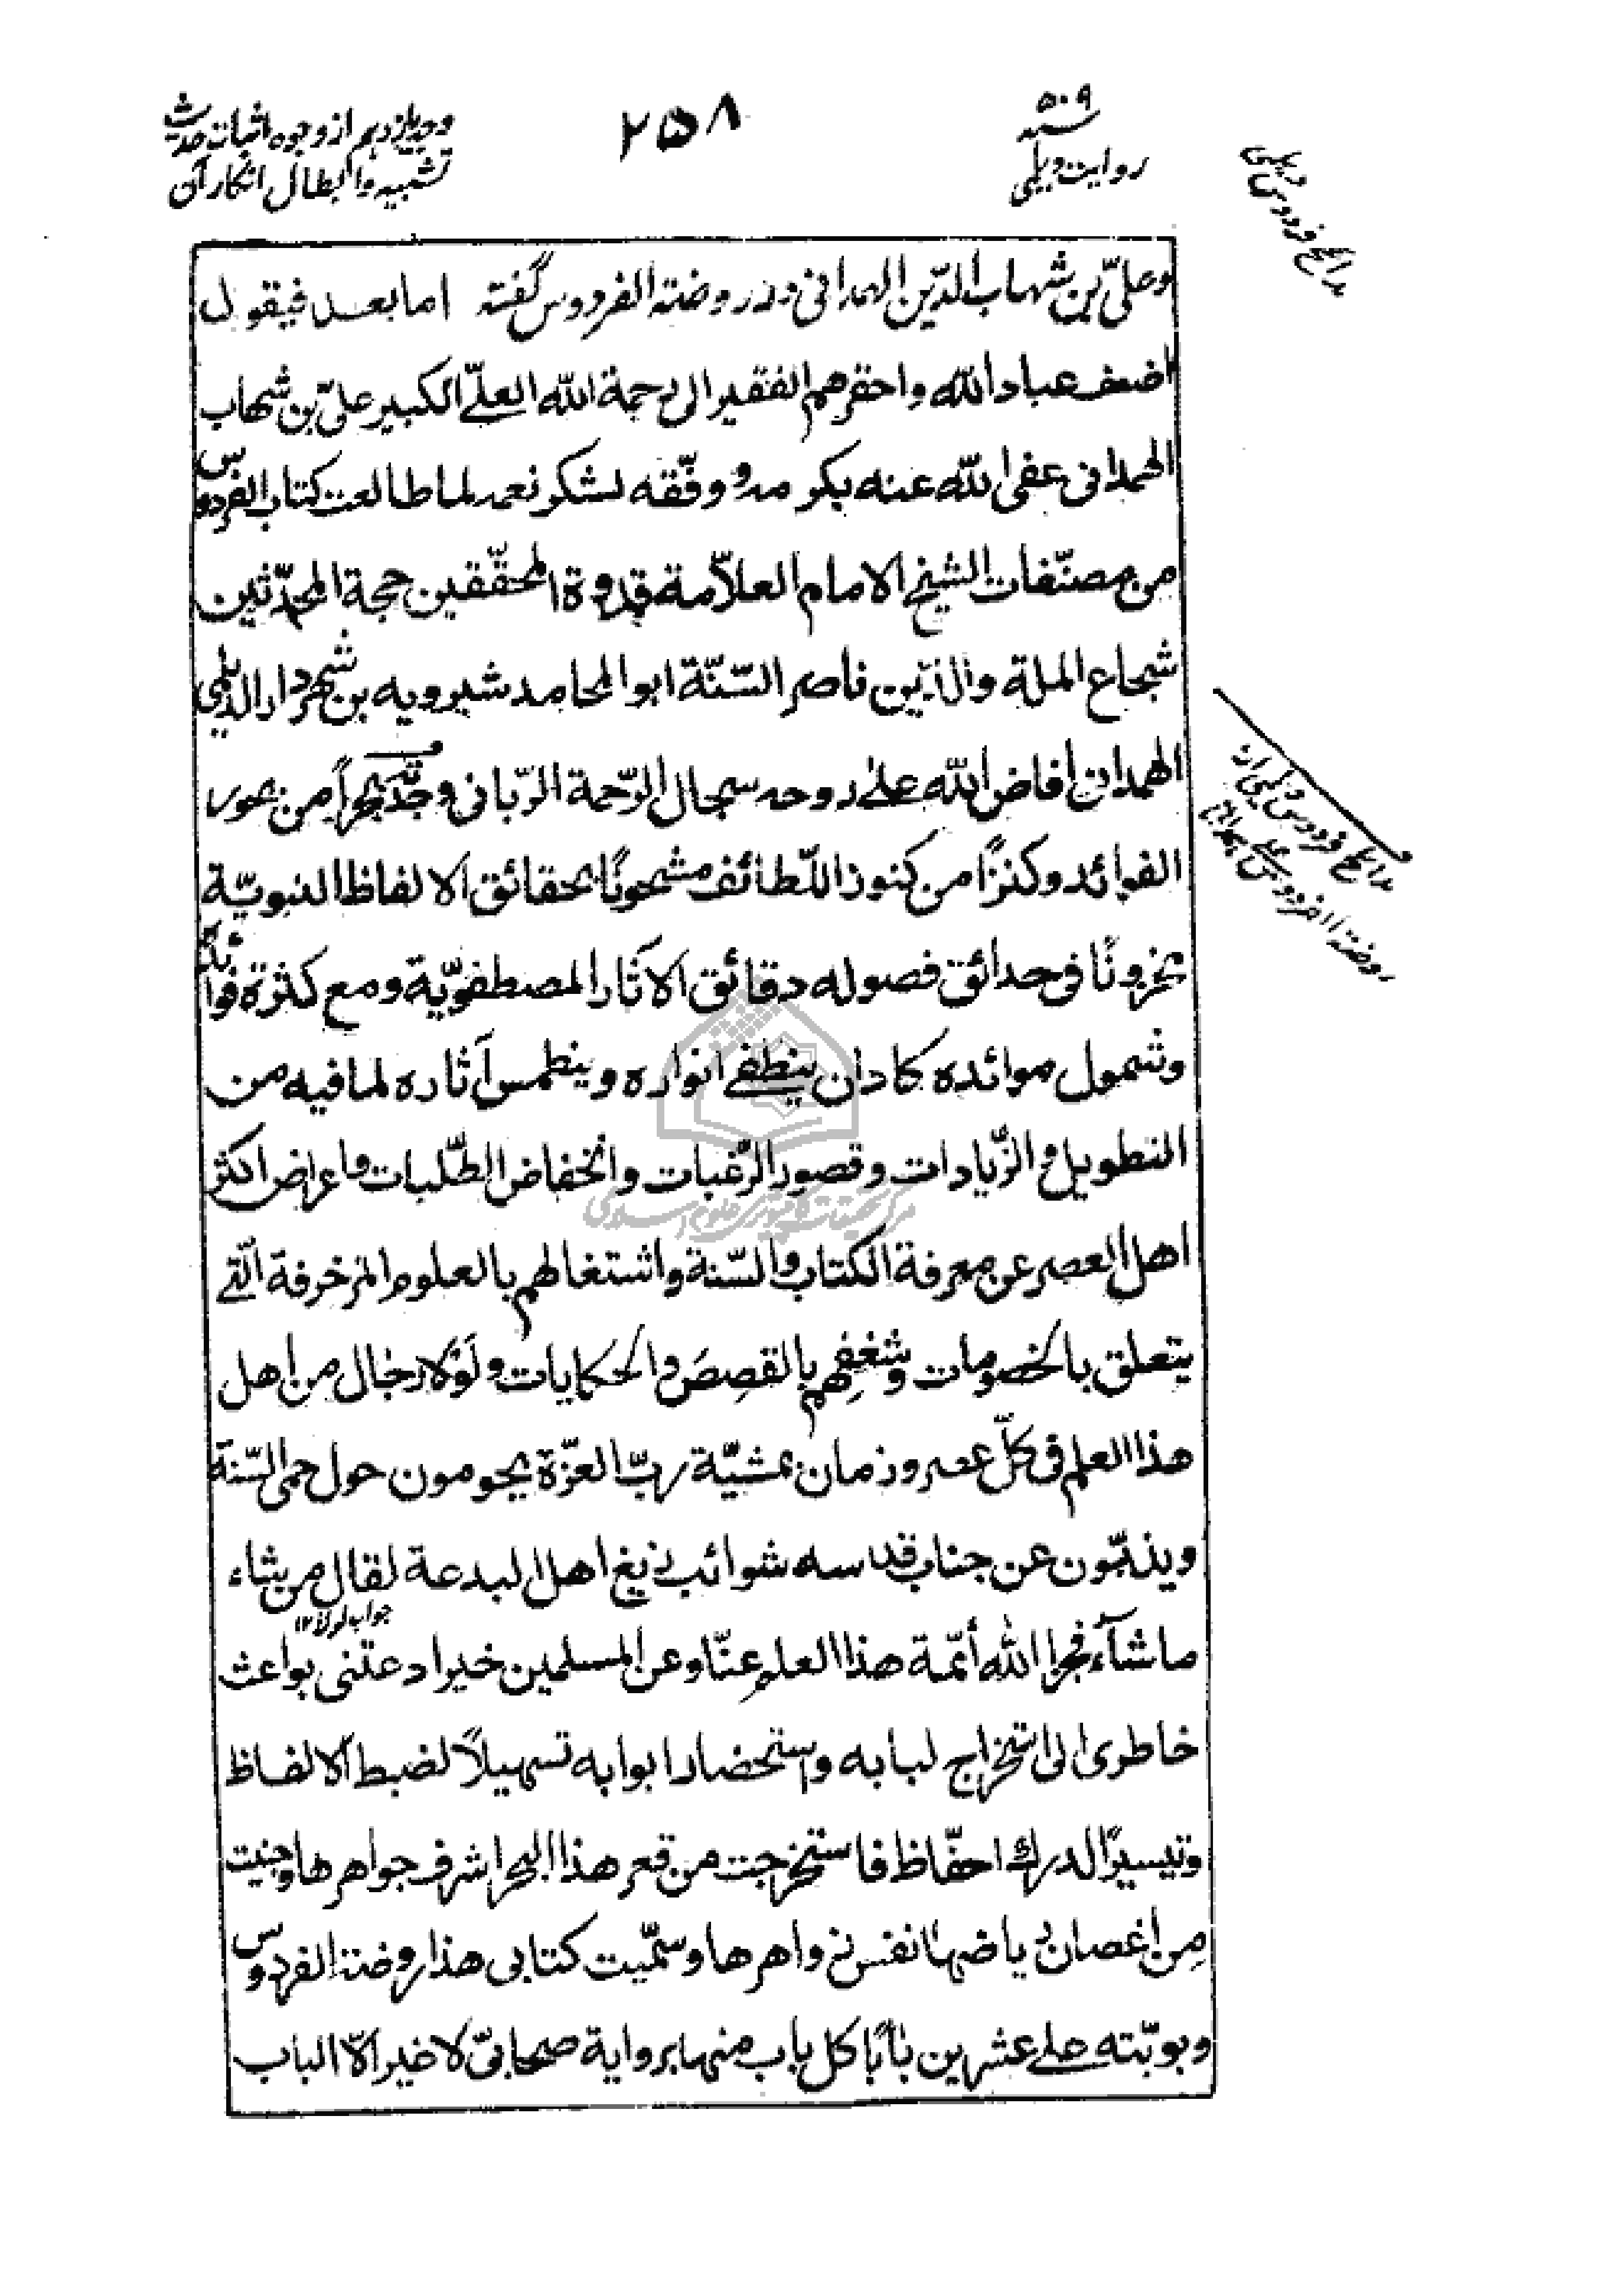 ۵۰۹ سنه
روایت دیلمی
۲۵۸
وجه یازدهم از وجوه اثبات حدیث
تشبیه و ابطال انکار آن
مدائح فردوس دیلمی
وعلیّ بن شهاب الدّین الهمدانی در روضة الفردوس گفته اما بعد فیقول
اضعف عباد الله واحقرهم الفقیر الی رحمة الله العلّی الکبیر علیّ بن شهاب
الهمدانی عفی الله عنه بکرمه ووفّقه لشکر نعمه لما طالعت کتاب الفردوس
من مصنّفات الشیخ الامام العلّامة قدوة المحقّقین حجة المحدّثین
شجاع الملة والدّین ناصر السّنّة ابو المحامد شیرویه بن شهردار الدیلمی
الهمدانی افاض الله علی روحه سجال الرّحمة الرّبانی وجدته بحراً من بحور
الفوائد وکنزًا من کنوز اللّطائف مشحونًا بحقائق الالفاظ النبویّة
مخزونًا فی حدائق فصوله دقائق الآثار المصطفویّة ومع کثرة فوائده
وشمول موائده کاد ان ینطفی انواره وینطمس آثاره لما فیه من
التطویل والزّیادات وقصور الرّغبات وانخفاض الطّلبات واعراض اکثر
اهل العصر عن معرفة الکتاب والسّنة واشتغالهم بالعلوم المزخرفة الّتی
یتعلق بالخصومات وشغفِهم بالقصصَ والحکایات ولَوْلا رجال من اهل
هذا العلم فی کلّ عصر وزمان بمشیّة ربّ العزّة یحومون حول حمی السّنة
ویذبّون عن جناب قدسه شوائب زیغ اهل البدعة لقال من شاء
جواب لولا ۱۲
ما شآء فجزا الله أئمّة هذا العلم عنّا وعن المسلمین خیرا دعتنی بواعث
خاطری الی استخراج لبابه واستحضار ابوابه تسهیلاً لضبط الالفاظ
وتیسیرًا لدرک احفّاظ فاستخرجت من قعر هذا البحر اشرف جواهرها وجنیت
مِن اغصان ریاضها انفس زواهرها وسمّیت کتابی هذا روضة الفردوس
وبوبّته علی عشرین بابًا کل باب منها بروایة صحابیّ لا غیر الّا الباب
مدائح فردوس دیلمی از
روضة الفردوس علی همدانی
مرکز تحقیقات کامپیوتری علوم اسلامی